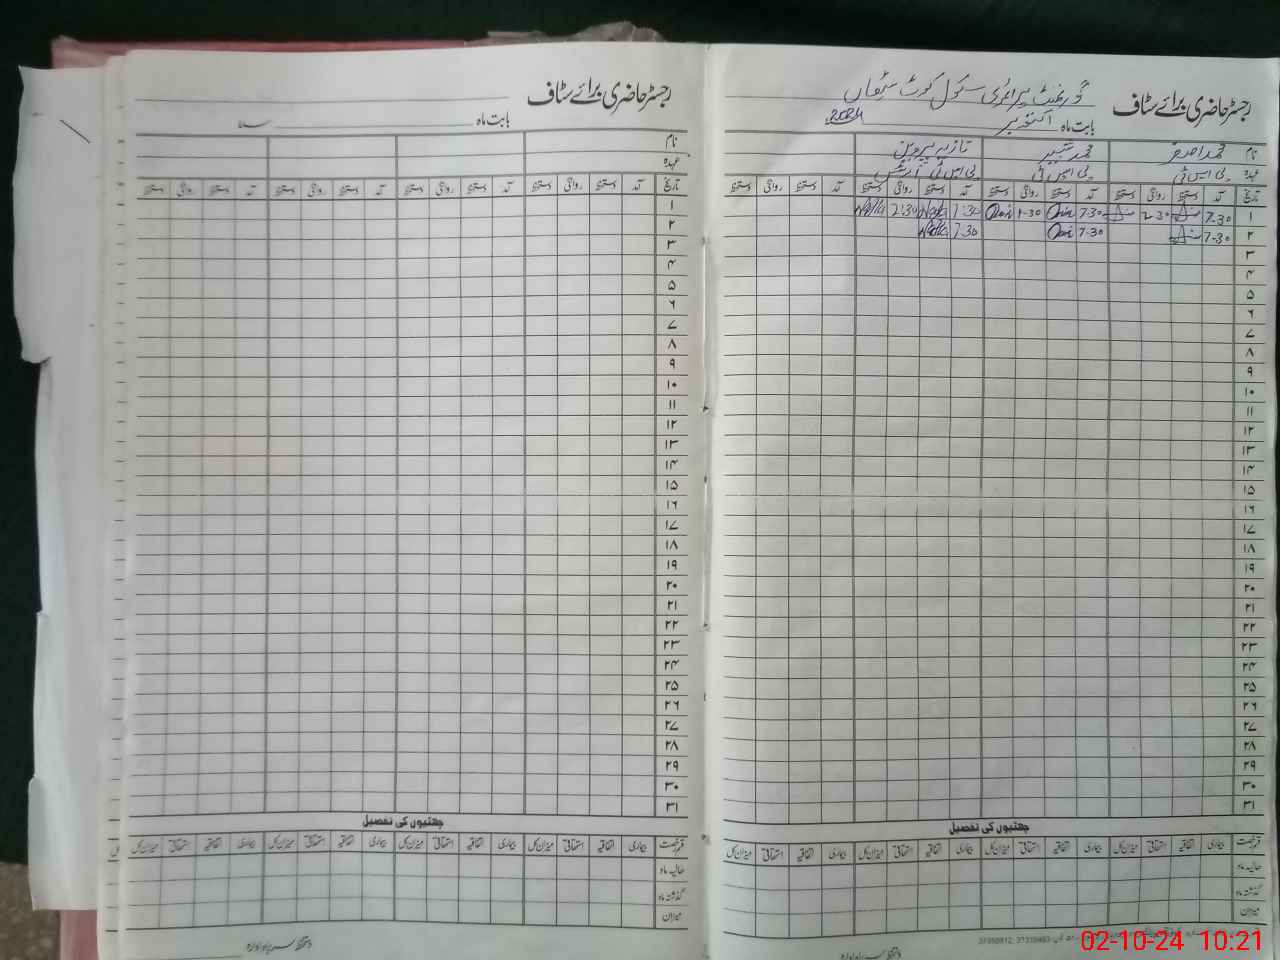 رجسٹر حاضری برائے سٹاف
گورنمنٹ پرائمری سکول کوٹ
بابت ماہ اکتوبر 2024
نام محمد اصغر محمد شبیر نازیہ پروین
عہدہ پی ایس ٹی پی ایس ٹی پی ایس ٹی
تاریخ آمد دستخط روانگی دستخط آمد دستخط روانگی دستخط آمد دستخط روانگی دستخط آمد دستخط روانگی دستخط
۱ 7-30 2-30 7-30 1-30 7:30 2:30
۲ 7-30 7-30 7:30
۳
۴
۵
۶
۷
۸
۹
۱۰
۱۱
۱۲
۱۳
۱۴
۱۵
۱۶
۱۷
۱۸
۱۹
۲۰
۲۱
۲۲
۲۳
۲۴
۲۵
۲۶
۲۷
۲۸
۲۹
۳۰
۳۱
چھٹیوں کی تفصیل
قسم رخصت بیماری اتفاقیہ استحقاقی میزان کل بیماری اتفاقیہ استحقاقی میزان کل بیماری اتفاقیہ استحقاقی میزان کل بیماری اتفاقیہ استحقاقی میزان کل
حالیہ ماہ
گذشتہ ماہ
میزان
دستخط سربراہ ادارہ
رجسٹر حاضری برائے سٹاف
بابت ماہ سنہ
نام
عہدہ
تاریخ آمد دستخط روانگی دستخط آمد دستخط روانگی دستخط آمد دستخط روانگی دستخط آمد دستخط روانگی دستخط
۱
۲
۳
۴
۵
۶
۷
۸
۹
۱۰
۱۱
۱۲
۱۳
۱۴
۱۵
۱۶
۱۷
۱۸
۱۹
۲۰
۲۱
۲۲
۲۳
۲۴
۲۵
۲۶
۲۷
۲۸
۲۹
۳۰
۳۱
چھٹیوں کی تفصیل
قسم رخصت بیماری اتفاقیہ استحقاقی میزان کل بیماری اتفاقیہ استحقاقی میزان کل بیماری اتفاقیہ استحقاقی میزان کل بیماری اتفاقیہ استحقاقی میزان کل
حالیہ ماہ
گذشتہ ماہ
میزان
دستخط سربراہ ادارہ
02-10-24 10:21